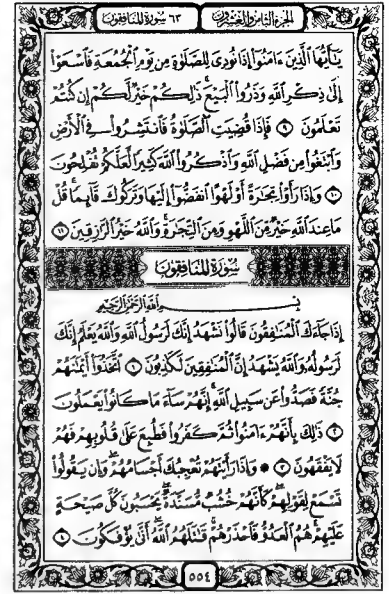 الجزء الثامن والعشرون
٦٣ سورة المنافقون
يَٰٓأَيُّهَا ٱلَّذِينَ ءَامَنُوٓا۟ إِذَا نُودِىَ لِلصَّلَوٰةِ مِن يَوْمِ ٱلْجُمُعَةِ فَٱسْعَوْا۟
إِلَىٰ ذِكْرِ ٱللَّهِ وَذَرُوا۟ ٱلْبَيْعَ ذَٰلِكُمْ خَيْرٌ لَّكُمْ إِن كُنتُمْ
تَعْلَمُونَ ٩ فَإِذَا قُضِيَتِ ٱلصَّلَوٰةُ فَٱنتَشِرُوا۟ فِى ٱلْأَرْضِ
وَٱبْتَغُوا۟ مِن فَضْلِ ٱللَّهِ وَٱذْكُرُوا۟ ٱللَّهَ كَثِيرًا لَّعَلَّكُمْ تُفْلِحُونَ
١٠ وَإِذَا رَأَوْا۟ تِجَٰرَةً أَوْ لَهْوًا ٱنفَضُّوٓا۟ إِلَيْهَا وَتَرَكُوكَ قَآئِمًا قُلْ
مَا عِندَ ٱللَّهِ خَيْرٌ مِّنَ ٱللَّهْوِ وَمِنَ ٱلتِّجَٰرَةِ وَٱللَّهُ خَيْرُ ٱلرَّٰزِقِينَ ١١
سورة المنافقون
بِسْمِ ٱللَّهِ ٱلرَّحْمَٰنِ ٱلرَّحِيمِ
إِذَا جَآءَكَ ٱلْمُنَٰفِقُونَ قَالُوا۟ نَشْهَدُ إِنَّكَ لَرَسُولُ ٱللَّهِ وَٱللَّهُ يَعْلَمُ إِنَّكَ
لَرَسُولُهُۥ وَٱللَّهُ يَشْهَدُ إِنَّ ٱلْمُنَٰفِقِينَ لَكَٰذِبُونَ ١ ٱتَّخَذُوٓا۟ أَيْمَٰنَهُمْ
جُنَّةً فَصَدُّوا۟ عَن سَبِيلِ ٱللَّهِ إِنَّهُمْ سَآءَ مَا كَانُوا۟ يَعْمَلُونَ
٢ ذَٰلِكَ بِأَنَّهُمْ ءَامَنُوا۟ ثُمَّ كَفَرُوا۟ فَطُبِعَ عَلَىٰ قُلُوبِهِمْ فَهُمْ
لَا يَفْقَهُونَ ٣ ۞ وَإِذَا رَأَيْتَهُمْ تُعْجِبُكَ أَجْسَامُهُمْ وَإِن يَقُولُوا۟
تَسْمَعْ لِقَوْلِهِمْ كَأَنَّهُمْ خُشُبٌ مُّسَنَّدَةٌ يَحْسَبُونَ كُلَّ صَيْحَةٍ
عَلَيْهِمْ هُمُ ٱلْعَدُوُّ فَٱحْذَرْهُمْ قَٰتَلَهُمُ ٱللَّهُ أَنَّىٰ يُؤْفَكُونَ ٤
٥٥٤